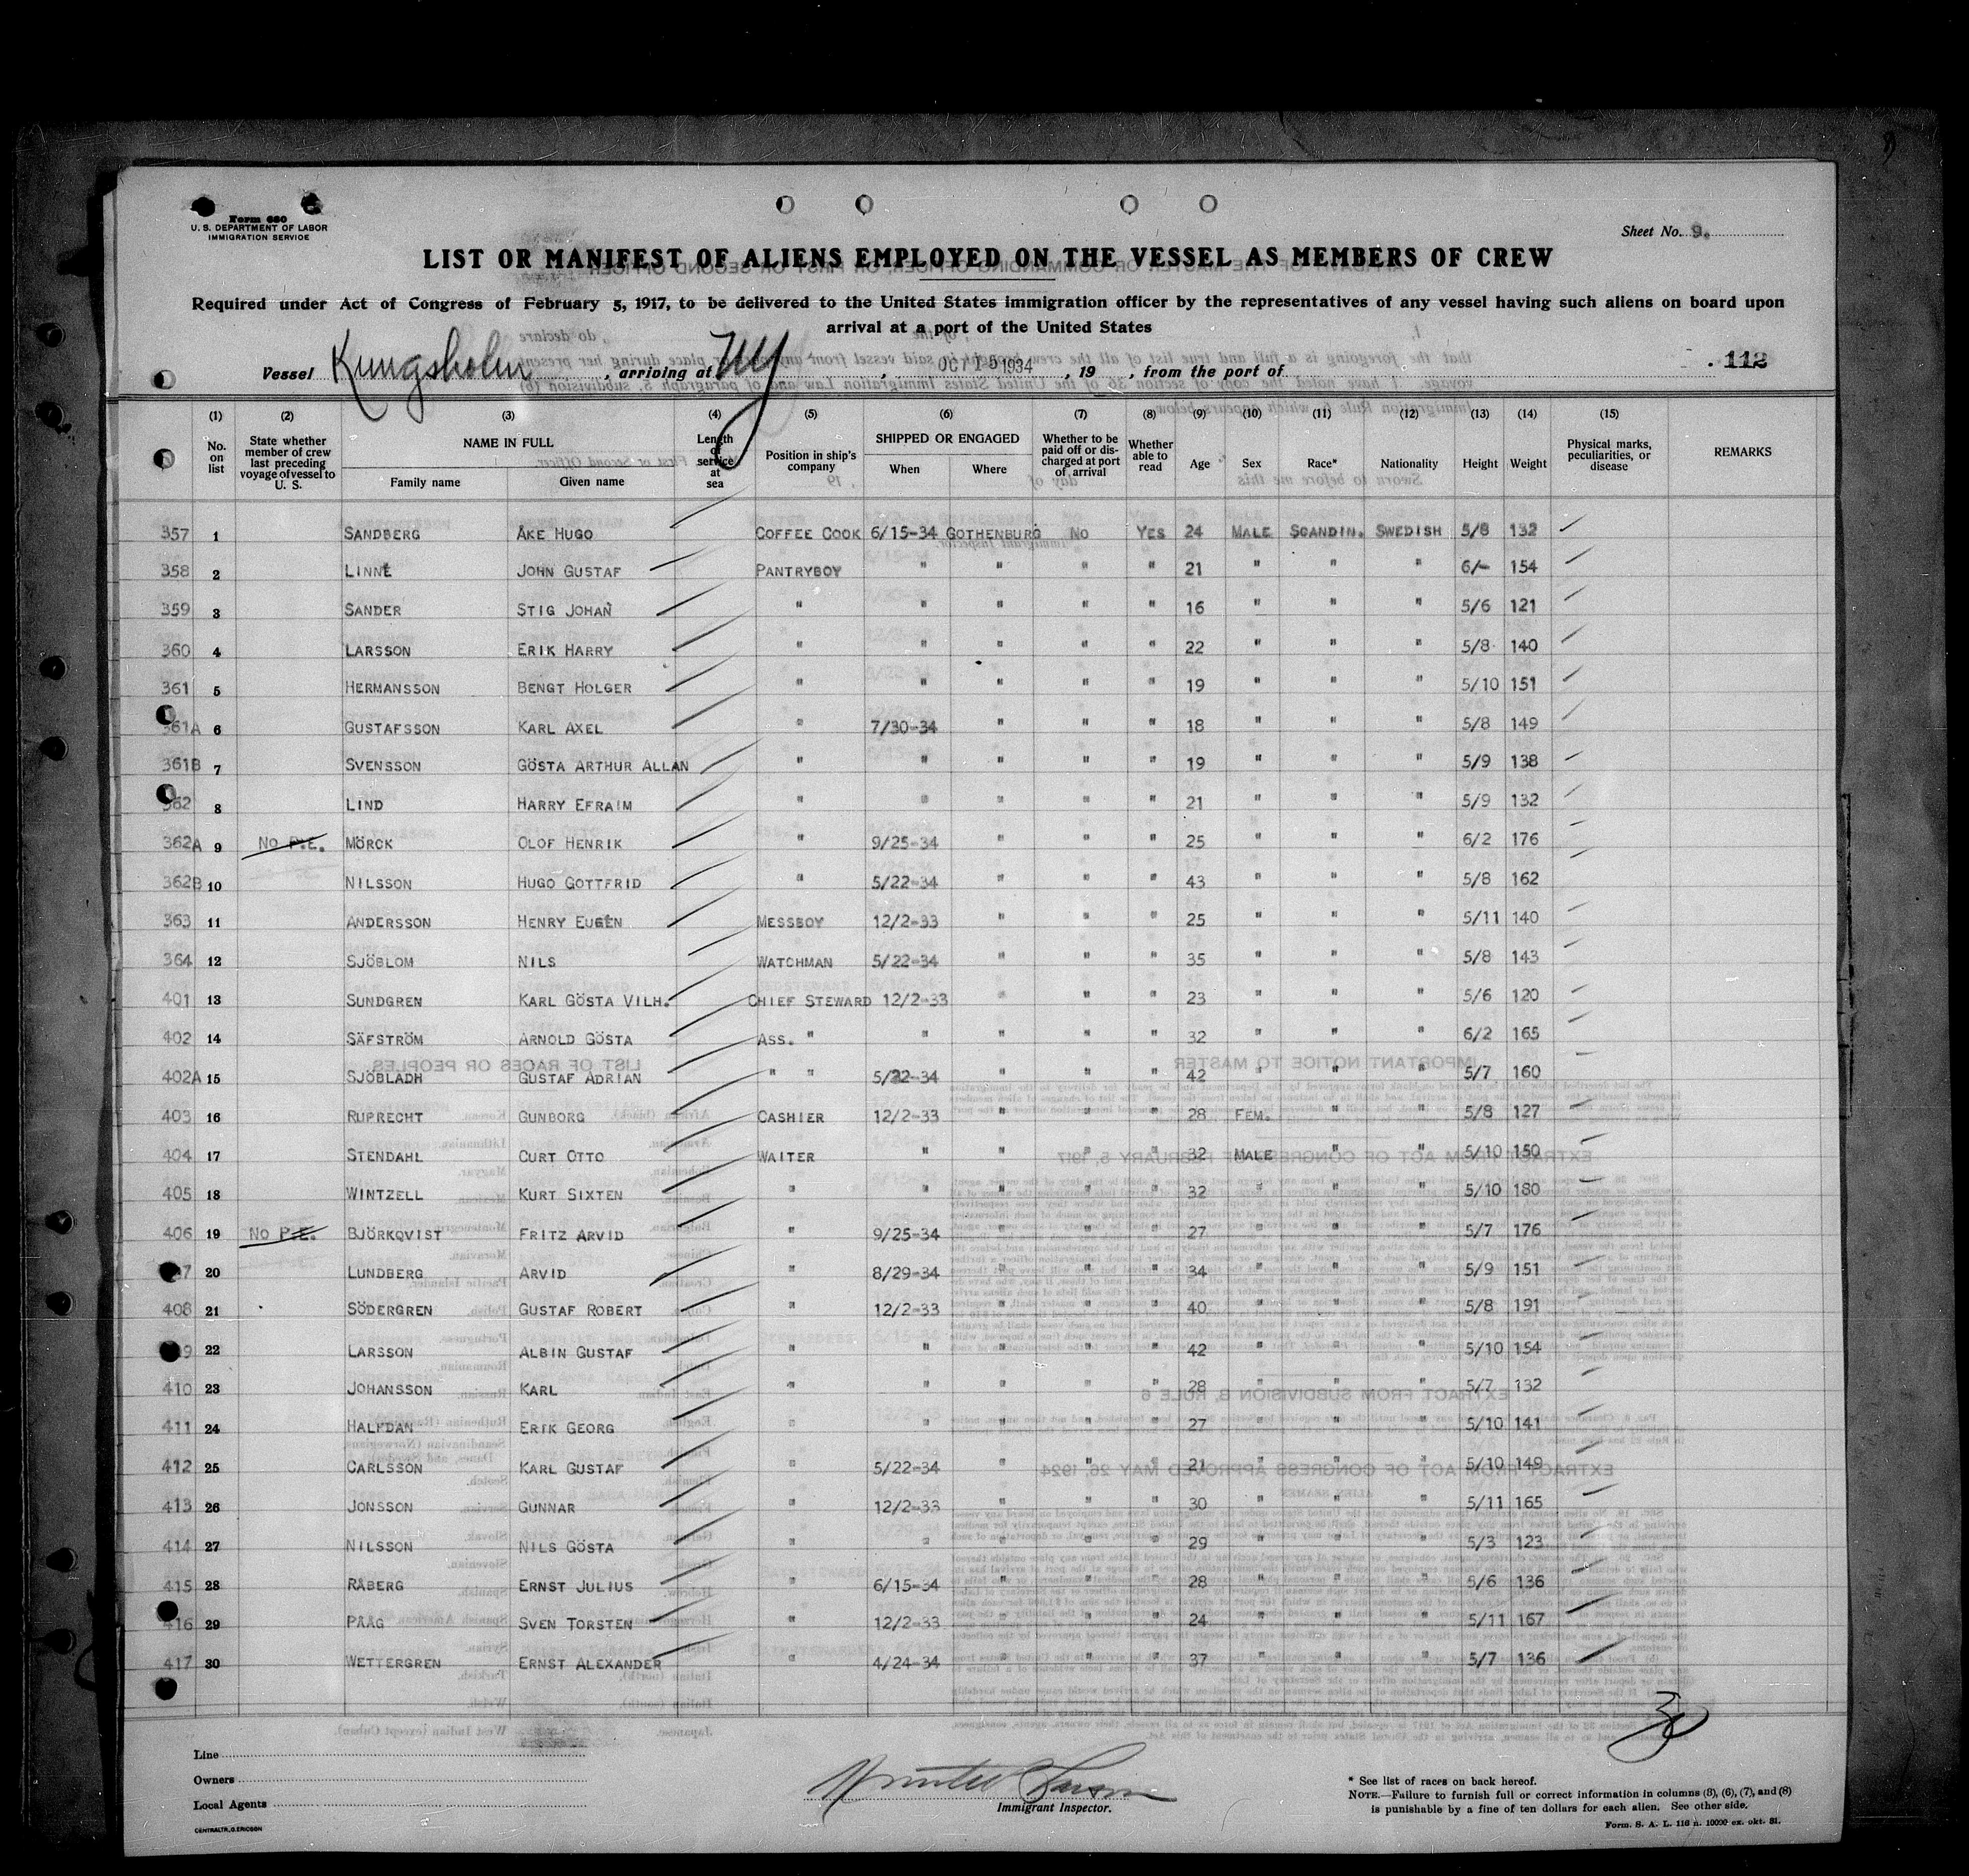 Form 680
U. S. DEPARTMENT OF LABOR
IMMIGRATION SERVICE
Sheet No. 9.
LIST OR MANIFEST OF ALIENS EMPLOYED ON THE VESSEL AS MEMBERS OF CREW
Required under Act of Congress of February 5, 1917, to be delivered to the United States immigration officer by the representatives of any vessel having such aliens on board upon
arrival at a port of the United States
Vessel Kungsholm, arriving at NY, OCT 15 1934, 19 , from the port of 112
(1) (2) (3) (4) (5) (6) (7) (8) (9) (10) (11) (12) (13) (14) (15)
No. on list State whether member of crew last preceding voyage of vessel to U. S. NAME IN FULL Family name Given name Length of service at sea Position in ship's company SHIPPED OR ENGAGED When Where Whether to be paid off or discharged at port of arrival Whether able to read Age Sex Race* Nationality Height Weight Physical marks, peculiarities, or disease REMARKS
357 1 SANDBERG ÅKE HUGO COFFEE COOK 6/15-34 GOTHENBURG NO YES 24 MALE SCANDIN. SWEDISH 5/8 132
358 2 LINNÉ JOHN GUSTAF PANTRYBOY " " " " 21 " " " 6/- 154
359 3 SANDER STIG JOHAN " " " " " 16 " " " 5/6 121
360 4 LARSSON ERIK HARRY " " " " " 22 " " " 5/8 140
361 5 HERMANSSON BENGT HOLGER " " " " " 19 " " " 5/10 151
361A 6 GUSTAFSSON KARL AXEL " 7/30-34 " " " 18 " " " 5/8 149
361B 7 SVENSSON GÖSTA ARTHUR ALLAN " " " " " 19 " " " 5/9 138
362 8 LIND HARRY EFRAIM " " " " " 21 " " " 5/9 132
362A 9 NO P.E. MÖRCK OLOF HENRIK " 9/25-34 " " " 25 " " " 6/2 176
362B 10 NILSSON HUGO GOTTFRID " 5/22-34 " " " 43 " " " 5/8 162
363 11 ANDERSSON HENRY EUGÉN MESSBOY 12/2-33 " " " 25 " " " 5/11 140
364 12 SJÖBLOM NILS WATCHMAN 5/22-34 " " " 35 " " " 5/8 143
401 13 SUNDGREN KARL GÖSTA VILH. CHIEF STEWARD 12/2-33 " " " 23 " " " 5/6 120
402 14 SÄFSTRÖM ARNOLD GÖSTA ASS. " " " " " 32 " " " 6/2 165
402A 15 SJÖBLADH GUSTAF ADRIAN " " 5/22-34 " " " 42 " " " 5/7 160
403 16 RUPRECHT GUNBORG CASHIER 12/2-33 " " " 28 FEM. " " 5/8 127
404 17 STENDAHL CURT OTTO WAITER " " " " 32 MALE " " 5/10 150
405 18 WINTZELL KURT SIXTEN " " " " " 32 " " " 5/10 180
406 19 NO P.E. BJÖRKQVIST FRITZ ARVID " 9/25-34 " " " 27 " " " 5/7 176
7 20 LUNDBERG ARVID " 8/29-34 " " " 34 " " " 5/9 151
408 21 SÖDERGREN GUSTAF ROBERT " 12/2-33 " " " 40 " " " 5/8 191
9 22 LARSSON ALBIN GUSTAF " " " " " 42 " " " 5/10 154
410 23 JOHANSSON KARL " " " " " 28 " " " 5/7 132
411 24 HALFDAN ERIK GEORG " " " " " 27 " " " 5/10 141
412 25 CARLSSON KARL GUSTAF " 5/22-34 " " " 21 " " " 5/10 149
413 26 JONSSON GUNNAR " 12/2-33 " " " 30 " " " 5/11 165
414 27 NILSSON NILS GÖSTA " " " " " 29 " " " 5/3 123
415 28 RÅBERG ERNST JULIUS " 6/15-34 " " " 28 " " " 5/6 136
416 29 PÅÅG SVEN TORSTEN " 12/2-33 " " " 24 " " " 5/11 167
417 30 WETTERGREN ERNST ALEXANDER " 4/24-34 " " " 37 " " " 5/7 136
30
Line
Owners
Local Agents
CENTRALTR., G. ERICSON
Immigrant Inspector.
* See list of races on back hereof.
NOTE.—Failure to furnish full or correct information in columns (3), (6), (7), and (8)
is punishable by a fine of ten dollars for each alien. See other side.
Form. S. A. L. 116 n. 10000 ex. okt. 31.